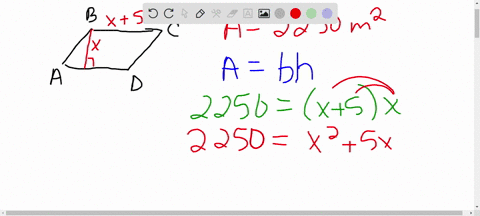 B x+5 C
x
A D
A = 2250 m²
A = bh
2250 = (x+5)x
2250 = x² + 5x